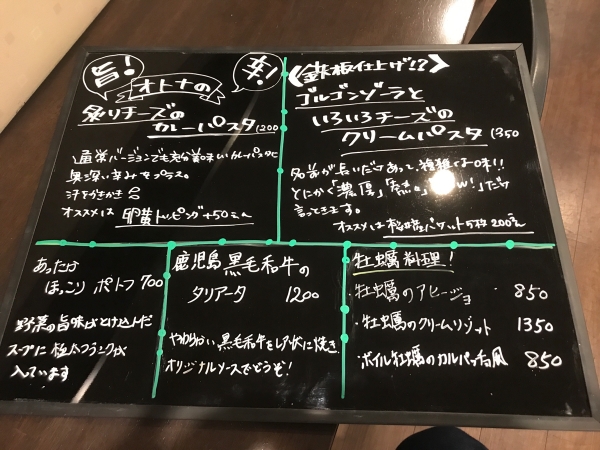 旨!
辛!
オトナの
炙りチーズの
カレーパスタ 1200
通常バージョンでも充分美味いカレーパスタに
奥深い辛みをプラス。
汗をかきかき
オススメは 卵黄トッピング+50えん
《鉄板仕上げ!?
ゴルゴンゾーラと
いろいろチーズの
クリームパスタ 1350
名前が長いだけあって、複雑な味!!
とにかく「濃厚」
言っときます。
オススメは 5枚 200えん
あったか
ほっこり ポトフ 700
野菜の旨味がとけ込んだ
スープに 極太フランクが
入ています
鹿児島 黒毛和牛の
タリアータ 1200
やわらかい 黒毛和牛をレア状に焼き
オリジナルソースでどうぞ!
牡蠣料理!
・牡蠣のアヒージョ 850
・牡蠣のクリームリゾット 1350
・ボイル牡蠣のカルパッチョ風 850